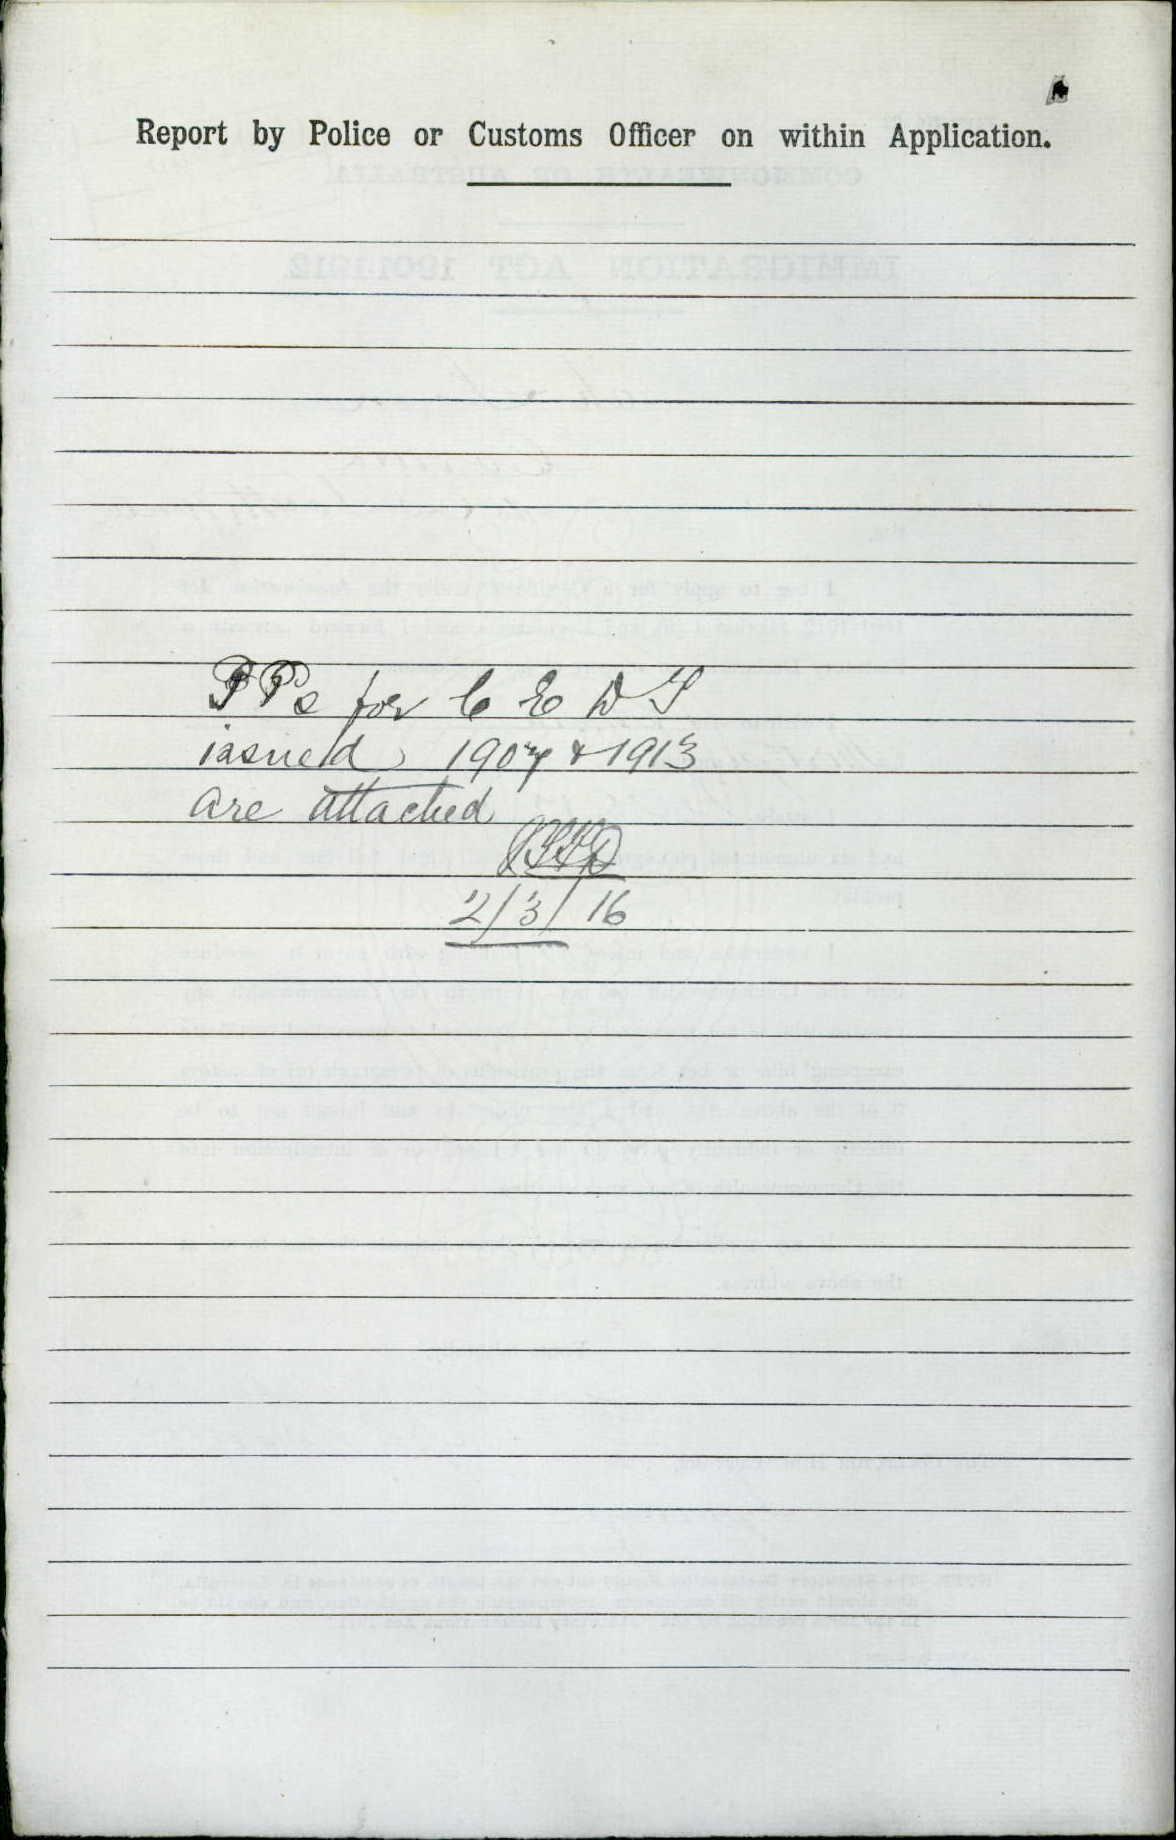 Report by Police or Customs Officer on within Application.
PPs for C E D T
issued 1907 & 1913
are attached
2/3/16